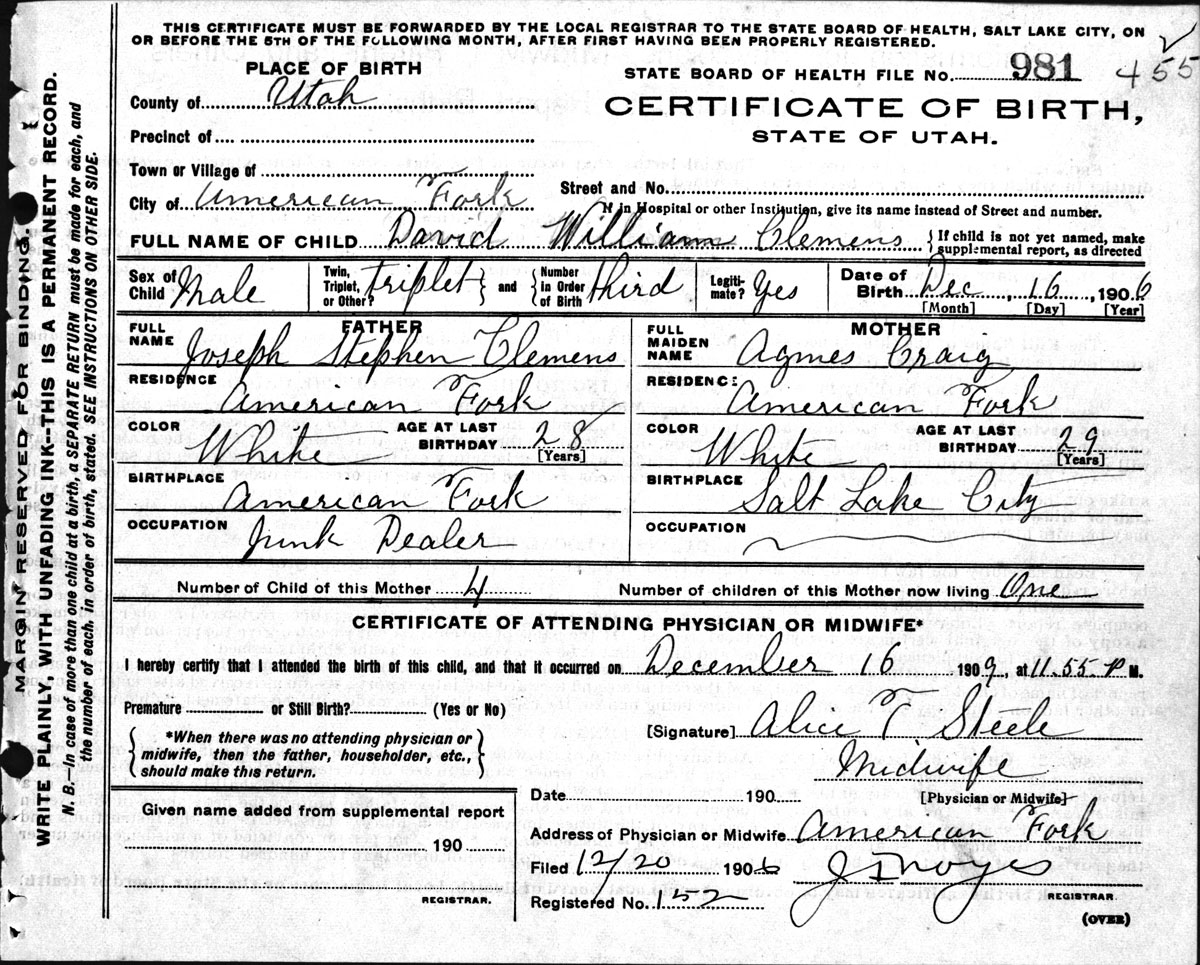 THIS CERTIFICATE MUST BE FORWARDED BY THE LOCAL REGISTRAR TO THE STATE BOARD OF HEALTH, SALT LAKE CITY, ON
OR BEFORE THE 5TH OF THE FOLLOWING MONTH, AFTER FIRST HAVING BEEN PROPERLY REGISTERED.
PLACE OF BIRTH
STATE BOARD OF HEALTH FILE NO. 981 455
County of Utah
CERTIFICATE OF BIRTH,
STATE OF UTAH.
Precinct of
Town or Village of
Street and No.
City of American Fork
If in Hospital or other Institution, give its name instead of Street and number.
FULL NAME OF CHILD David William Clemens { If child is not yet named, make
supplemental report, as directed
Sex of Child Male
Twin, Triplet, or Other? triplet } and { Number in Order of Birth third
Legiti-mate? Yes
Date of Birth Dec, 16, 1906
[Month] [Day] [Year]
FATHER
FULL NAME Joseph Stephen Clemens
RESIDENCE American Fork
COLOR White AGE AT LAST BIRTHDAY 28 [Years]
BIRTHPLACE American Fork
OCCUPATION Junk Dealer
MOTHER
FULL MAIDEN NAME Agnes Craig
RESIDENCE American Fork
COLOR White AGE AT LAST BIRTHDAY 29 [Years]
BIRTHPLACE Salt Lake City
OCCUPATION
Number of Child of this Mother 4 Number of children of this Mother now living One
CERTIFICATE OF ATTENDING PHYSICIAN OR MIDWIFE*
I hereby certify that I attended the birth of this child, and that it occurred on December 16 1909, at 11.55 P M.
Premature or Still Birth? (Yes or No)
[Signature] Alice T Steele
{ *When there was no attending physician or
midwife, then the father, householder, etc.,
should make this return. }
Midwife
[Physician or Midwife]
Date 190
Given name added from supplemental report
190
REGISTRAR.
Address of Physician or Midwife American Fork
Filed 12/20 1906 J I Noyes
REGISTRAR.
Registered No. 152
(OVER)
MARGIN RESERVED FOR BINDING.
WRITE PAINLY, WITH UNFADING INK--THIS IS A PERMANENT RECORD.
N. B.--In case of more than one child at a birth, a SEPARATE RETURN must be made for each, and
the number of each, in order of birth, stated. SEE INSTRUCTIONS ON OTHER SIDE.